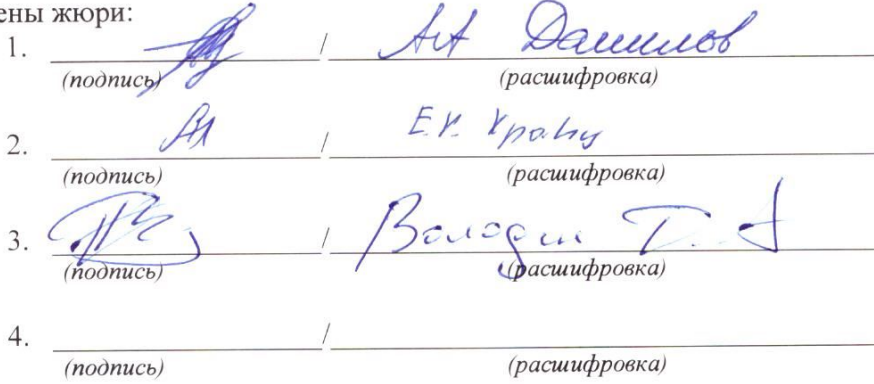 ены жюри:
1. / АА Данилов
(подпись) (расшифровка)
2. / Е.К.
(подпись) (расшифровка)
3. / Володин Т. А
(подпись) (расшифровка)
4. /
(подпись) (расшифровка)